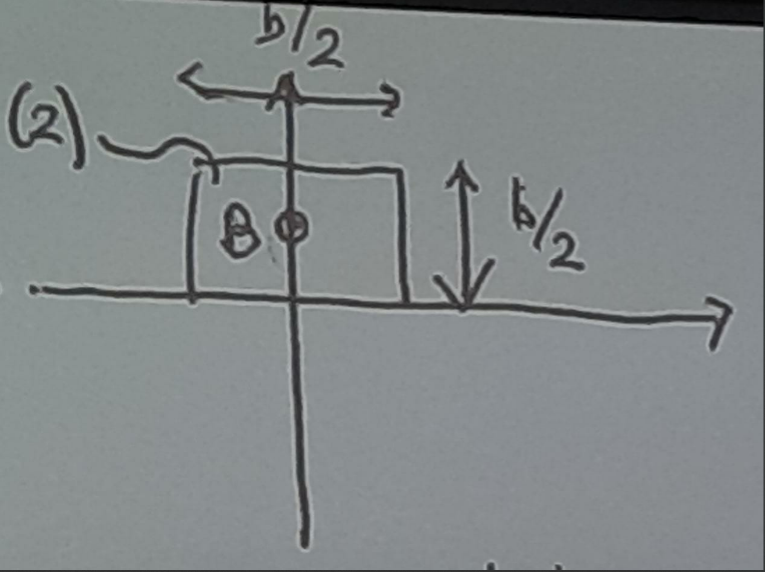 b/2
(2)
B
b/2